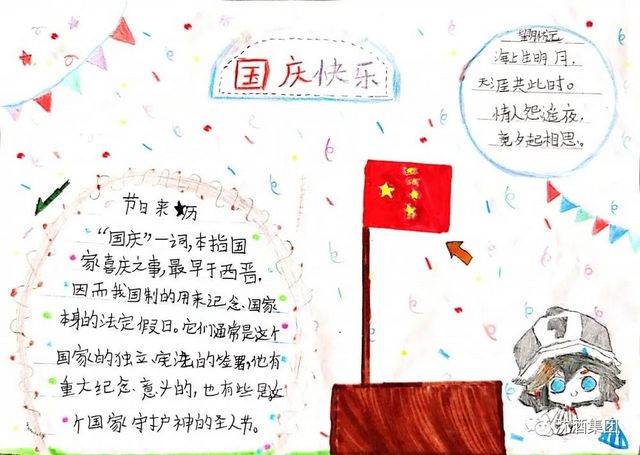 国庆快乐
望月怀远
海上生明月，
天涯共此时。
情人怨遥夜，
竟夕起相思。
节日来历
“国庆”一词，本指国
家喜庆之事，最早于西晋，
因而我国制的用来记念、国家
本身的法定假日。它们通常是这个
国家的独立、宪法的签署，他有
重大纪念、意义的，也有些是这
个国家守护神的圣人节。
苏酒集团